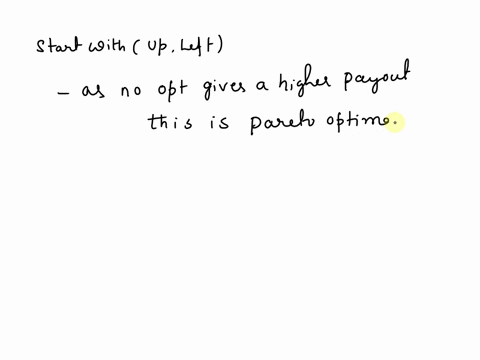 Start with ( Up, Left)
- as no opt gives a higher payout
this is pareto optime.